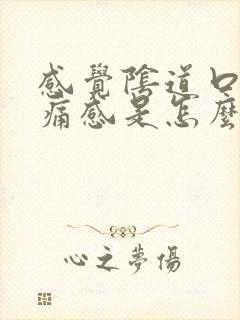 感覺陰道口
痛感是怎麼
心之夢傷